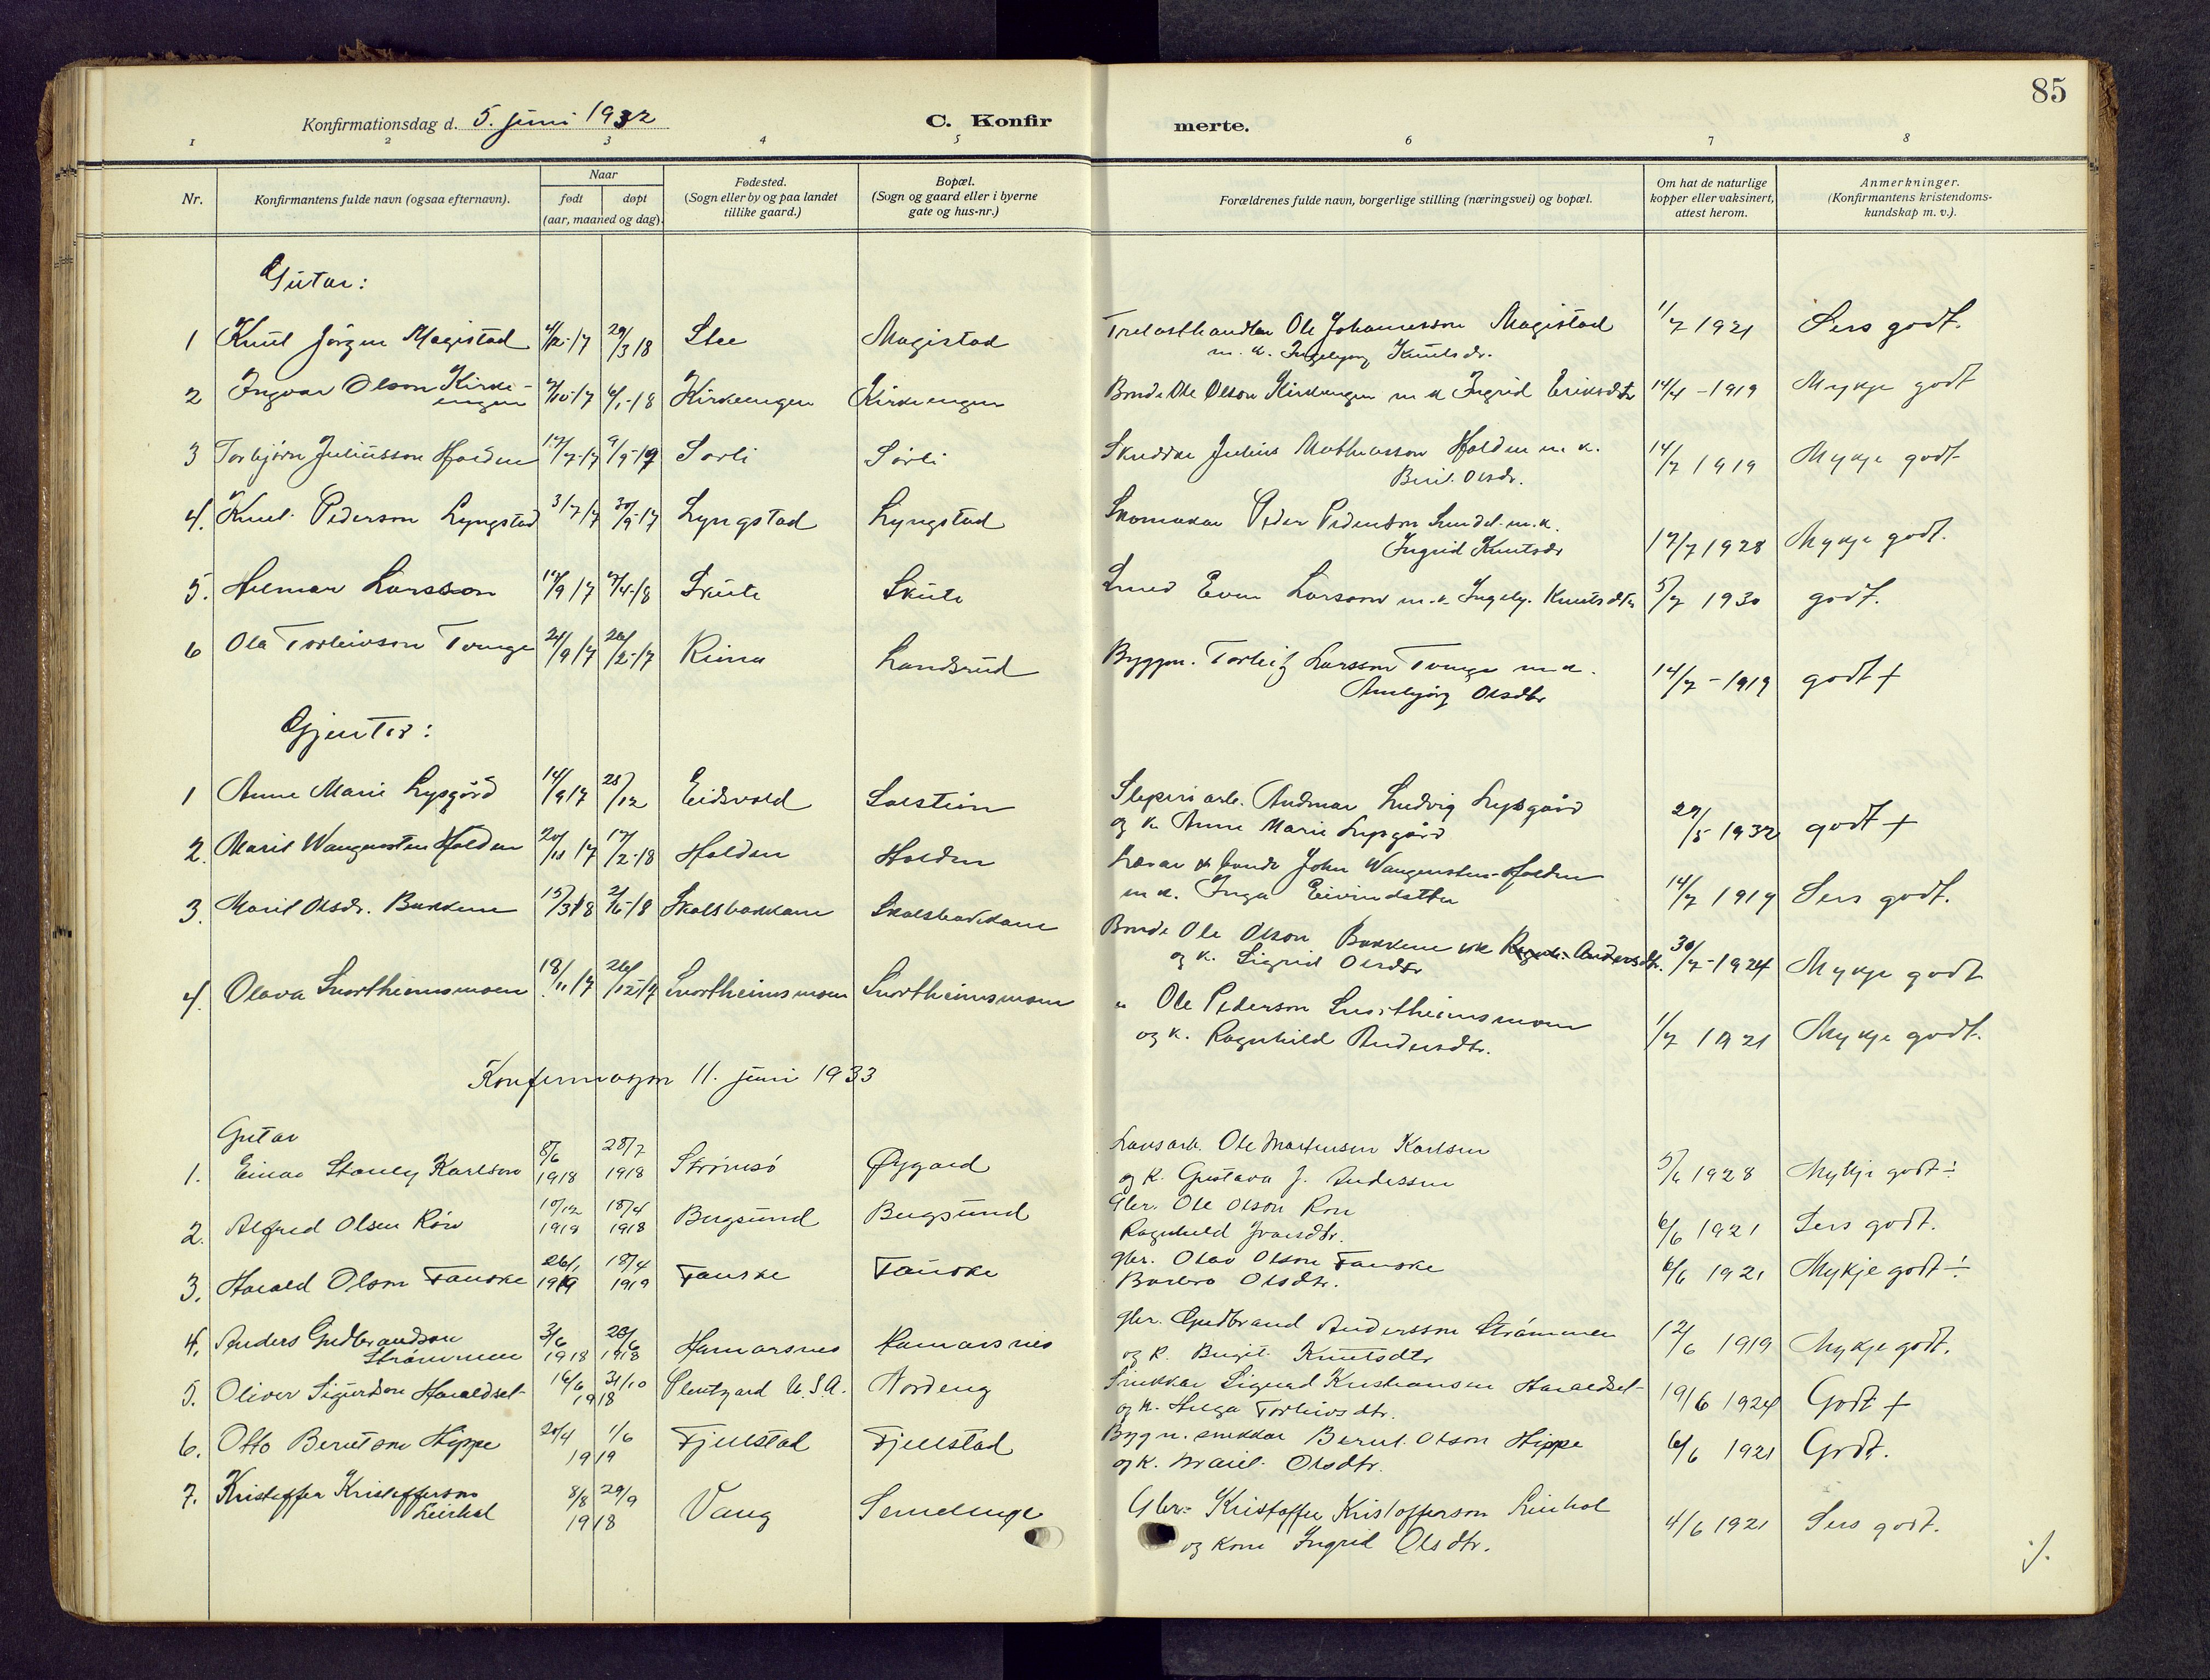 85
Konfirmationsdag d. 5. juni 1932
C. Konfir merte.
1 2 3 4 5 6 7 8
Nr. Konfirmantens fulde navn (ogsaa efternavn). Naar født døpt (aar, maaned og dag). Fødested. (Sogn eller by og paa landet tillike gaard.) Bopæl. (Sogn og gaard eller i byerne gate og hus-nr.) Forældrenes fulde navn, borgerlige stilling (næringsvei) og bopæl. Om hat de naturlige kopper eller vaksinert, attest herom. Anmerkninger. (Konfirmantens kristendoms-kundskap m. v.).
Gutar:
1 Knut Jörgen Magistad 29/3 18 Magistad Trelasthandlar Ole Johannesson Magistad 1/7 1921 Sers godt.
m. k. Ingebjorg Knutsdr.
2 Ingvar Olson Kirke-engen 6/1-18 Kirkeengen Kirkeengen Bonde Ole Olson Kirkeengen m k Ingrid Eriksdtr 14/4-1919 Mykje godt
3 Torbjørn Juliusson Holden 9/9-17 Sorli Sörli Skreddar Julius Mathiasson Holden m. k. 14/7 1919 Mykje godt
Berit Olsdr.
4. Knut Pederson Lyngstad 3/7 17 30/9 17 Lyngstad Lyngstad Skomakar Peder Pederson m. k.
Ingrid Knutsdr 17/7 1928 Mykje godt.
5. Hilmar Larsson 17/9 17 Skute Skute Smed Even Larsson m. k. Ingebj. Knutsdtr 5/7 1930 godt.
6 Ola Torleivson Tvenge 24/9 17 Landsrud Byggm. Torleif Larsson Tvenge m k. 14/7-1919 godt +
Olsdtr
Gjentor:
1 Anne Marie Lysgård 14/9 17 28/12 Eidsvold Solstein Sliperiarb. Andmar Ludvig Lysgård
og k. Anne Marie Lysgård 29/5 1932 godt +
2. Marit Wangensten Holden 20/10 17 17/2-18 Holden Holden Lærar & bonde John Wangensten-Holden
m k. Inga Eivindsttr 14/7 1919 Sers godt.
3. Marit Olsdr. Bakkene 15/3 18 Skolsbakkane Skolsbakkane Bonde Ole Olson Bakkene Andersdtr. 30/7-1924 Mykje godt
og k. Sigrid Olsdtr
4. Olava Snortheimsmoen 18/11 17 26/12-17 Snortheimsmoen Snortheimsmoen " Ole Pederson Snortheimsmoen
og k. Ragnhild Andersdtr. 1/7 1921 Mykje godt.
Konfirmasjon 11. juni 1933
Gutar
1. Einar Stanley Karlson 8/6 1918 28/7 1918 Strömsö Øygard Lausarb. Ole Martensen Karlsen
og k. Gustava J. Anderssen 5/6 1928 Mykje godt ÷
2. Alfred Olsen Rön 18/4 1918 Bergsund Bergsund Gbr. Ole Olson Ron
Ragnhild Ivarsdtr. 6/6 1921 Sers godt.
3. Harald Olson Fauske 26/1 1919 18/4 1919 Fauske Fauske gbr. Olav Olson Fauske
Barbro Olsdtr. 6/6 1921 Mykje godt ÷
4. Anders Gudbrandson Strömmen 3/6 1918 28/6 1918 Hamarsnes Hamarsnes gbr. Gudbrand Andersson Strömmen
og k. Bergit Knutsdtr 12/6 1919 Mykje godt.
5. Oliver Sigurdson Haraldset 16/6 31/10 1918 U.S.A. Nordeng Snikkar Sigurd Kristiansen Haraldset
og k. Helga Torleivsdtr. 19/6 1924 Godt +
6. Otto Berntson Hippe 20/4 1/6 1919 Fjellstad Fjellstad Bygn. snikkar Bernt Olson Hippe
og k. Marit Olsdtr. 6/6 1921 Godt.
7. Kristoffer Kristofferson Leirhol 8/8 29/9 1918 Vang Semelenge Gbr. Kristoffer Kristofferson Leirhol
og kone Ingrid Olsdtr. 4/6 1921 Sers godt.
./.